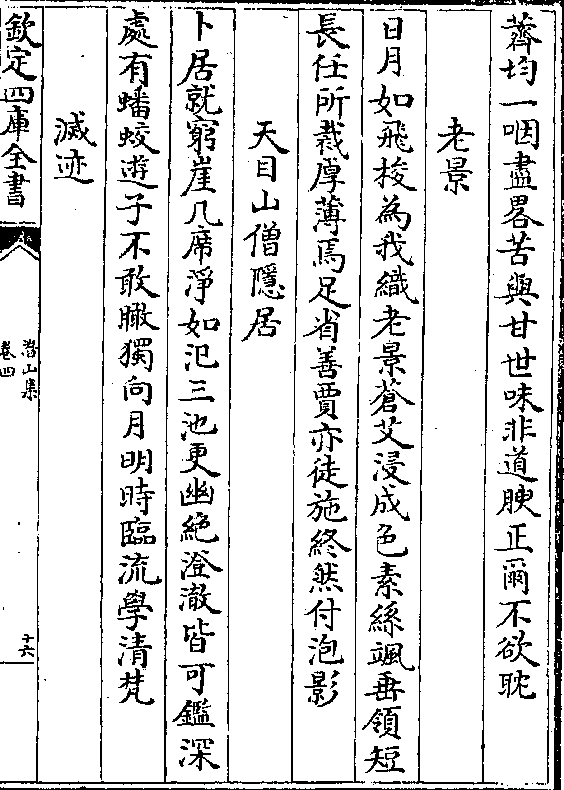 薺均一咽盡畧苦與甘世味非道腴正爾不欲耽
老景
日月如飛梭為我織老景蒼艾浸成色素絲颯垂領短
長任所裁厚薄焉足省善賈亦徒施終然付泡影
天目山僧隱居
卜居就窮崖几席淨如氾三池更幽絶澄澈皆可鑑深
處有蟠蛟遊子不敢瞰獨向月明時臨流學清梵
滅迹
欽定四庫全書
潛山集
卷四
十六